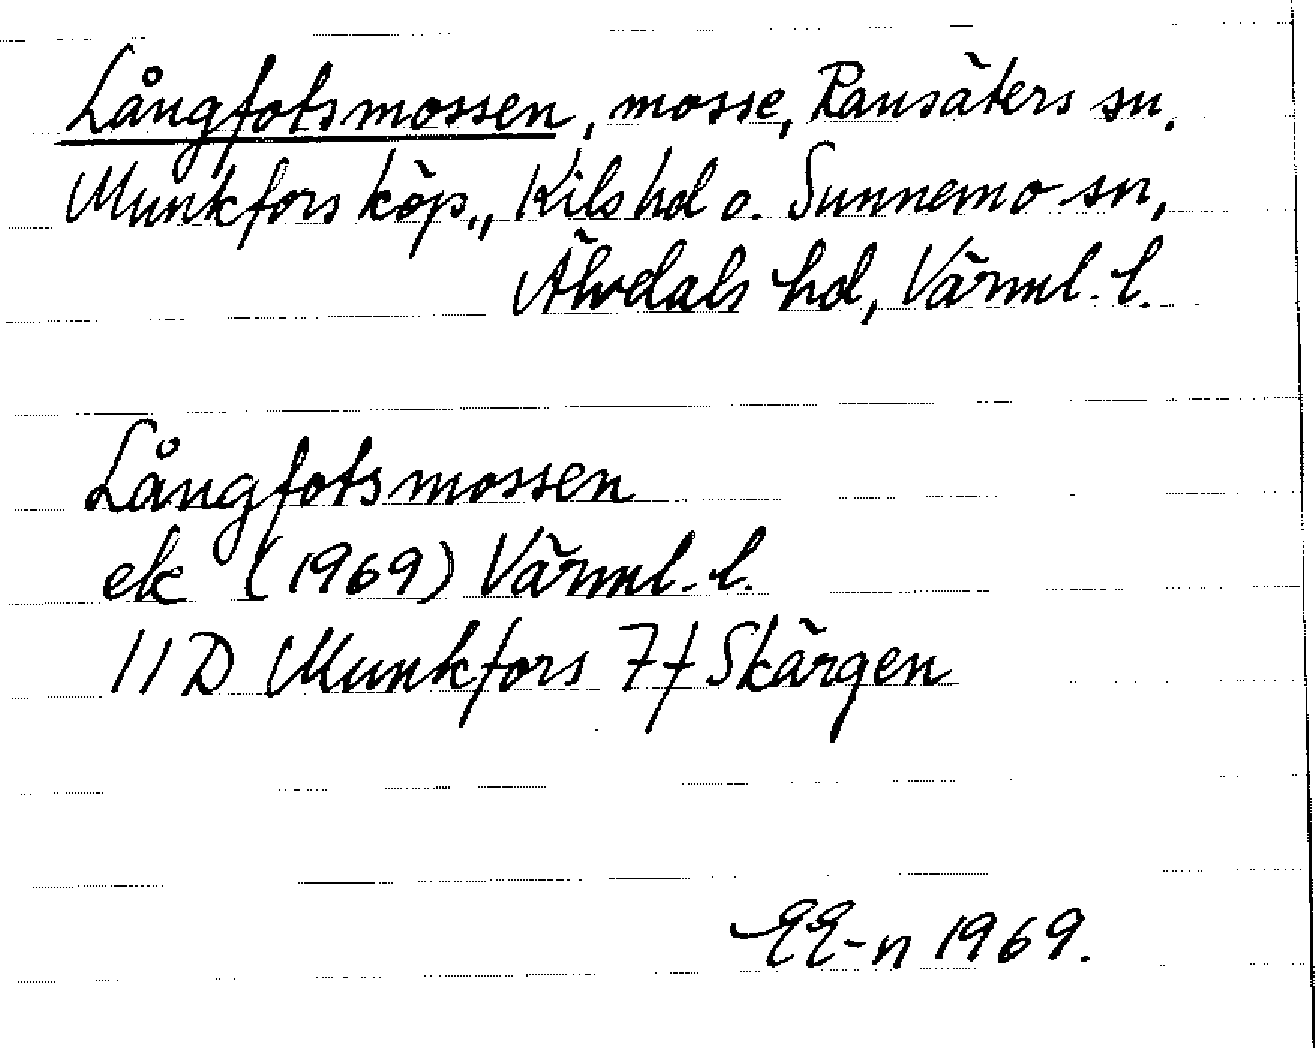 Långfotsmossen, mosse, Ransäters sn,
Munkfors köp., Kils hd o. Sunnemo sn,
Älvdals hd, Värml. l.
Långfotsmossen
ek (1969) Värml. l.
11D Munkfors 7f Skärgen
EE-n 1969.